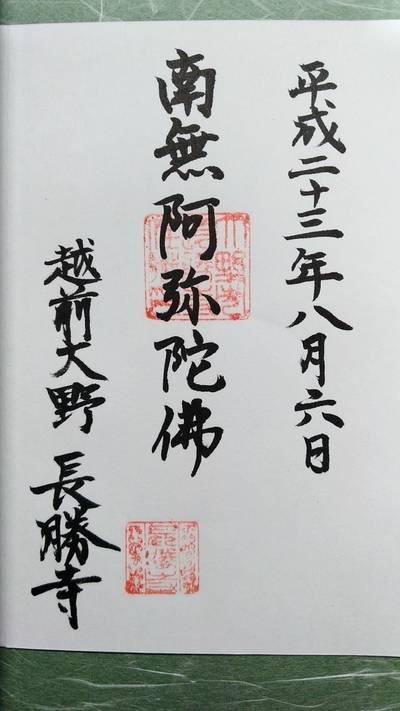 平成二十三年八月六日
南無阿弥陀佛
越前大野 長勝寺